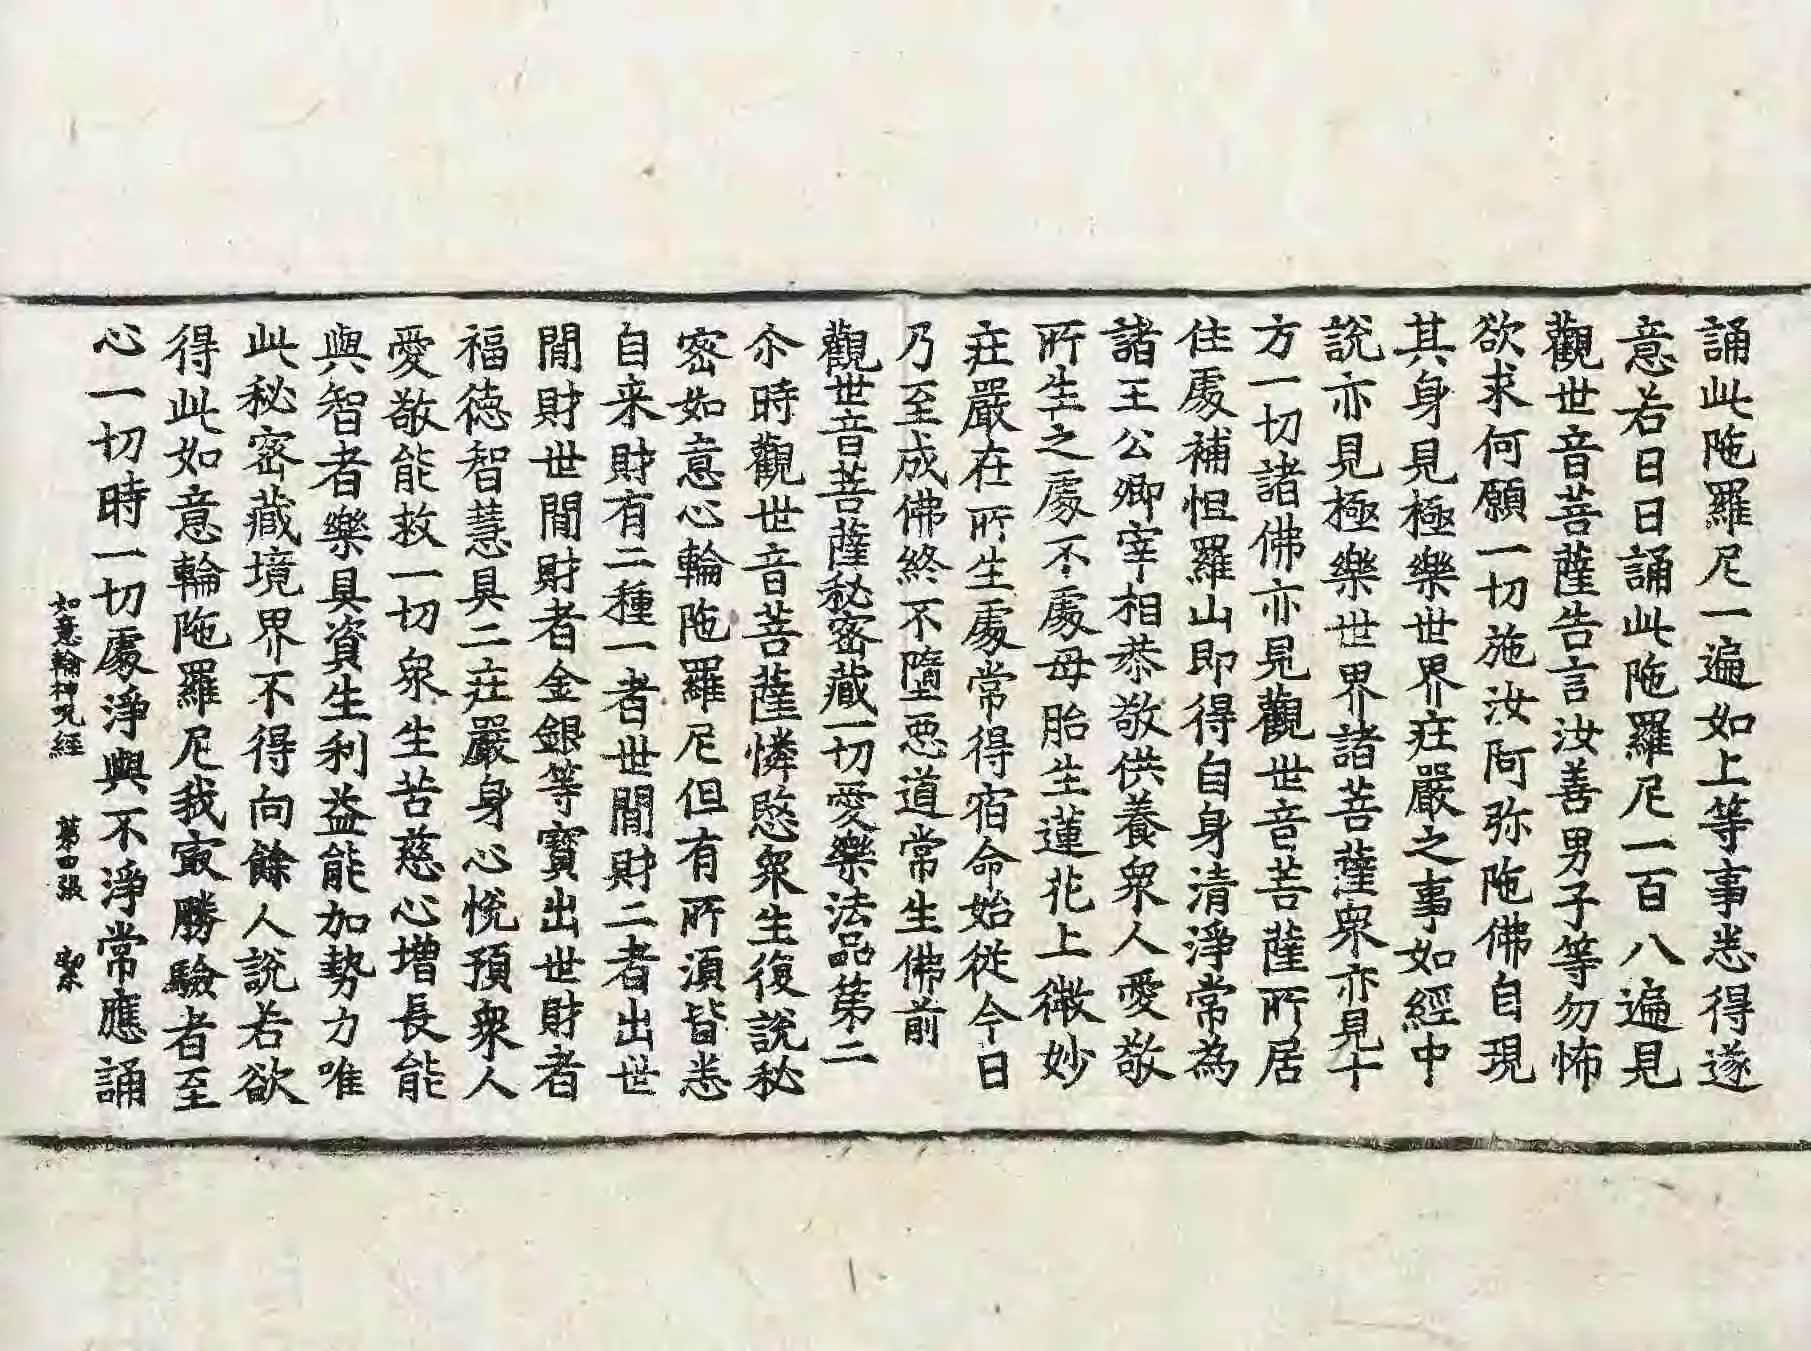 誦此陁羅尼一遍如上等事悉得遂
意若日日誦此陁羅尼一百八遍見
觀世音菩薩告言汝善男子等勿怖
欲求何願一切施汝阿弥陁佛自現
其身見極樂世界莊嚴之事如經中
說亦見極樂世界諸菩薩衆亦見十
方一切諸佛亦見觀世音菩薩所居
住處補怛羅山即得自身清淨常為
諸王公卿宰相恭敬供養衆人愛敬
所生之處不處母胎生蓮花上微妙
莊嚴在所生處常得宿命始從今日
乃至成佛終不墮惡道常生佛前
觀世音菩薩秘密藏一切愛樂法品第二
尒時觀世音菩薩憐愍衆生復說秘
密如意心輪陁羅尼但有所湏皆悉
自来財有二種一者世閒財二者出世
閒財世閒財者金銀等寶出世財者
福德智慧具二莊嚴身心悅預衆人
愛敬能救一切衆生苦慈心增長能
與智者樂具資生利益能加勢力唯
此秘密藏境界不得向餘人說若欲
得此如意輪陁羅尼我㝡勝驗者至
心一切時一切處淨與不淨常應誦
如意輪神呪經 第四張